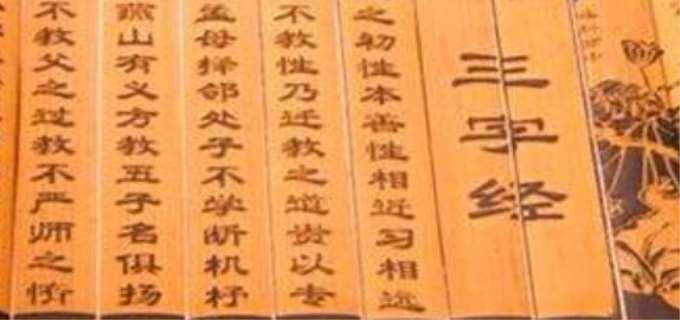 三字经
之初性本善性相近习相远
不教性乃迁教之道贵以专
孟母择邻处子不学断机杼
燕山有义方教五子名俱扬
不教父之过教不严师之惰